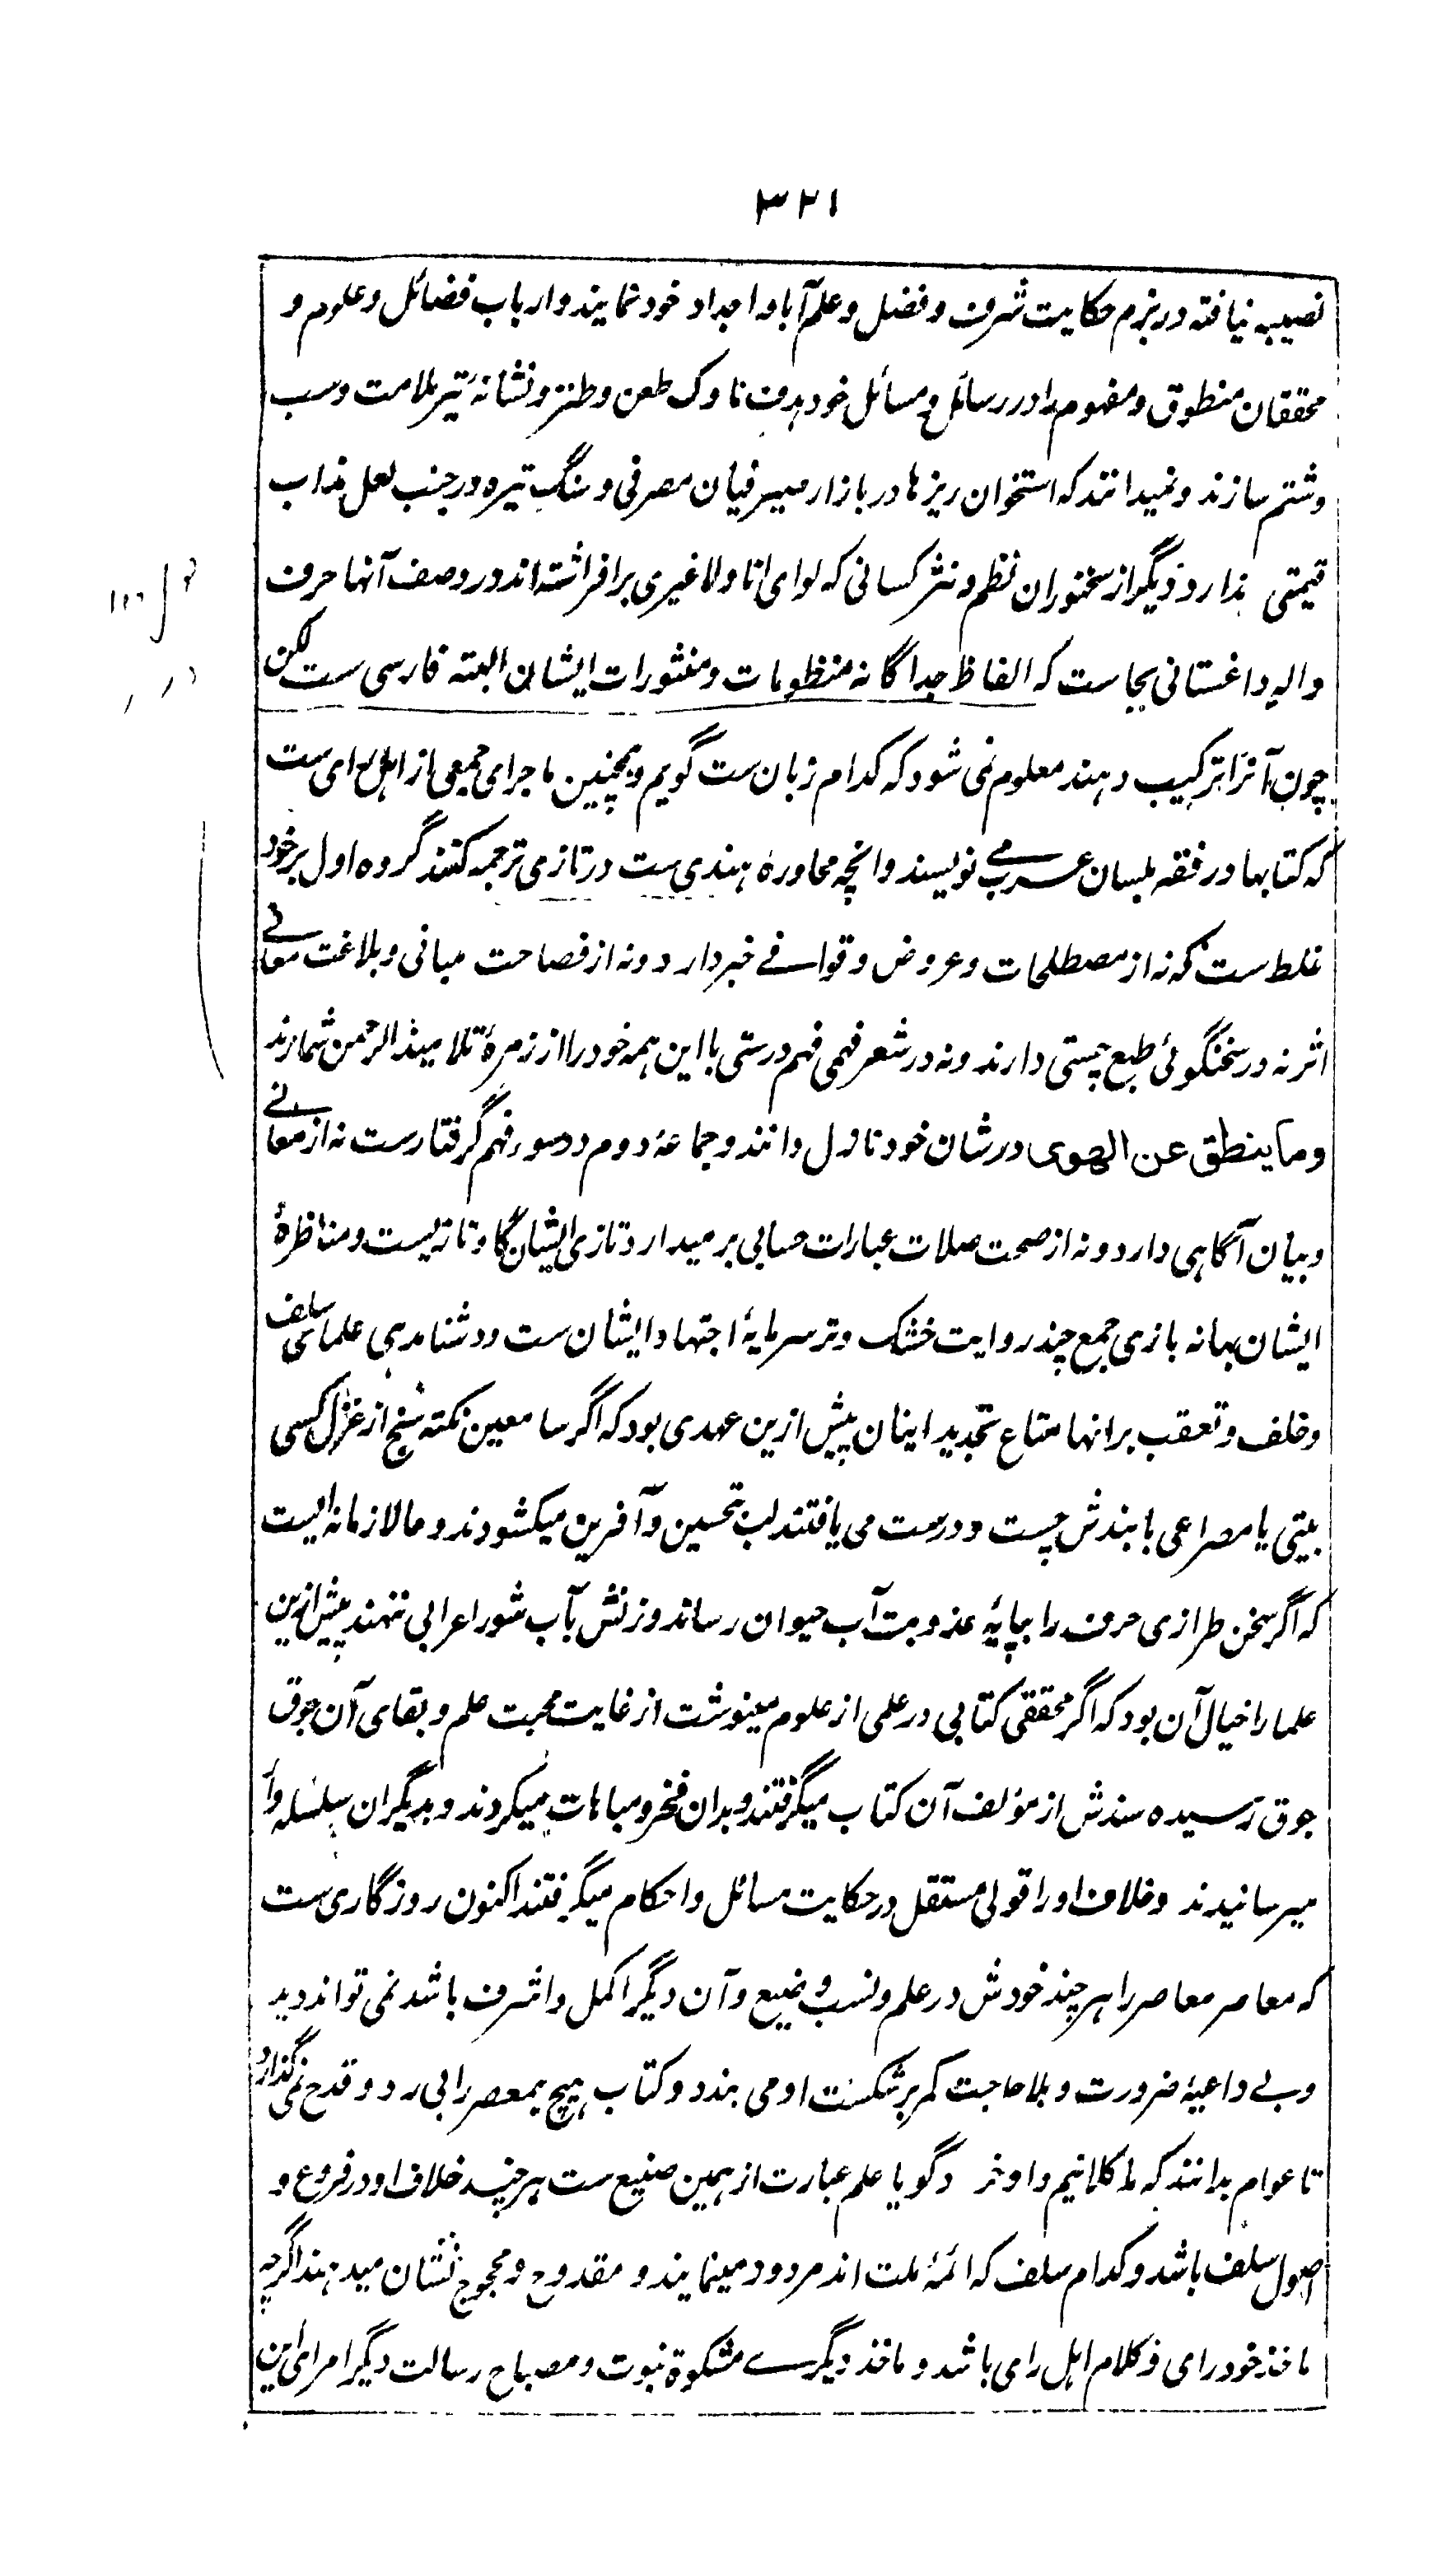 ۳۲۱
نصیبه نیافته در بزم حکایت شرف و فضل و علم آبا و اجداد خود نمایند و ارباب فضائل و علوم و
محققان منطوق و مفهوم را در رسائل و مسائل خود هدف ناوک طعن و طنز و نشانهٔ تیر ملامت و سب
و شتم سازند و نمیدانند که استخوان ریزها در بازار صیرفیان مصرفی و سنگ تیره در جنب لعل مذاب
قیمتی ندارد و دیگر از سخنوران نظم و نثر کسانی که لوای انا ولا غیری برافراشته اند در وصف آنها حرف
واله داغستانی بجاست که الفاظ جداگانه منظومات و منثورات ایشان البته فارسی ست لکن
چون آنرا ترکیب دهند معلوم نمی شود که کدام زبان ست گویم و همچنین ماجرای جمعی از اهل رای ست
که کتابها در فقه بلسان عربی می نویسند و انچه محاورهٔ هندی ست در تازی ترجمه کنند گروه اول برخود
غلط ست که نه از مصطلحات و عروض و قوافی خبر دارد و نه از فصاحت مبانی و بلاغت معانی
اثر نه در سخنگوئی طبع چستی دارند و نه در شعر فهمی فهم درستی با این همه خود را از زمرهٔ تلامیذ الرحمن شمارند
وما ینطق عن الهوی در شان خود نازل دانند و جماعهٔ دوم در سوء فهم گرفتارست نه از معانی
و بیان آگاهی دارد و نه از صحت صلات عبارات حسابی برمیدارد تازی ایشان گاو تازیست و مناظرهٔ
ایشان بهانه بازی جمع چند روایت خشک و تر سرمایهٔ اجتهاد ایشان ست و دشنام دهی علمای سلف
و خلف و تعقب بر انها متاع تجدید اینان پیش ازین عهدی بود که اگر سامعین نکته سنج از غزل کسی
بیتی یا مصراعی با بندش چست و درست می یافتند لب بتحسین و آفرین میکشودند و حالا زمانه ایست
که اگر سخن طرازی حرف را بپایهٔ عذوبت آب حیوان رساند وزنش بآب شور اعرابی ننهند پیش ازین
علما را خیال آن بود که اگر محققی کتابی در علمی از علوم مینوشت از غایت محبت علم و بقای آن جوق
جوق رسیده سندش از مؤلف آن کتاب میگرفتند و بدان فخر و مباهات میکردند و بدیگران سلسله وار
میرسانیدند و خلاف او را قولی مستقل در حکایت مسائل و احکام میگرفتند اکنون روزگاری ست
که معاصر معاصر را هر چند خودش در علم و نسب وضیع و آن دیگر اکمل و اشرف باشد نمی تواند دید
و بے داعیهٔ ضرورت و بلا حاجت کمر بر شکست او می بندد و کتاب هیچ همعصر را بی رد و قدح نمی گذارد
تا عوام بدانند که ما کلانیم و او خرد گویا علم عبارت از همین صنیع ست هر چند خلاف او در فروع و
اصول سلف باشد و کدام سلف که ائمهٔ ملت اند مردود مینمایند و مقدوح و مجروح نشان میدهند اگرچه
ماخذ خود رای و کلام اهل رای باشد و ماخذ دیگرے مشکوة نبوت و مصباح رسالت دیگر امرای این